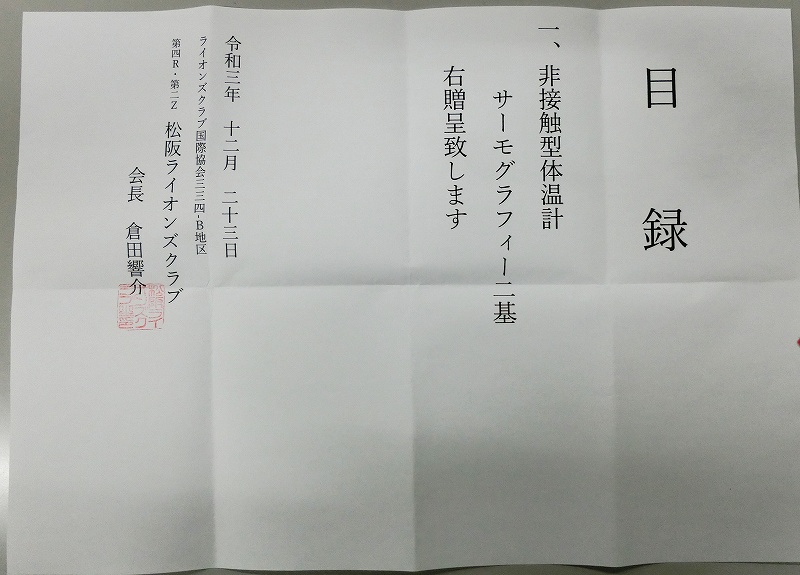 目 録
一、非接触型体温計
サーモグラフィー二基
右贈呈致します
令和三年 十二月 二十三日
ライオンズクラブ国際協会三三四-B地区
第四R・第二Z 松阪ライオンズクラブ
会長 倉田響介